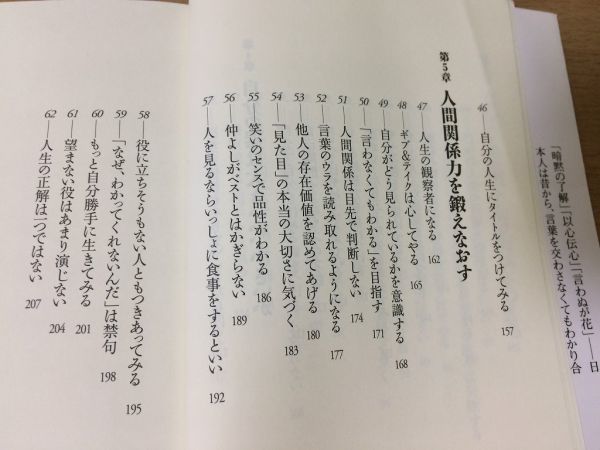 「暗黙の了解」「以心伝心」「言わぬが花」──日
本人は昔から、言葉を交わさなくてもわかり合
46──自分の人生にタイトルをつけてみる 157
第5章 人間関係力を鍛えなおす
47──人生の観察者になる 162
48──ギブ&テイクは心してやる 165
49──自分がどう見られているかを意識する 168
50──「言わなくてもわかる」を目指す 171
51──人間関係は目先で判断しない 174
52──言葉のウラを読み取れるようになる 177
53──他人の存在価値を認めてあげる 180
54──「見た目」の本当の大切さに気づく 183
55──笑いのセンスで品性がわかる 186
56──仲よしがベストとはかぎらない 189
57──人を見るならいっしょに食事をするといい 192
58──役に立ちそうもない人ともつきあってみる 195
59──「なぜ、わかってくれないんだ」は禁句 198
60──もっと自分勝手に生きてみる 201
61──望まない役はあまり演じない 204
62──人生の正解は一つではない 207